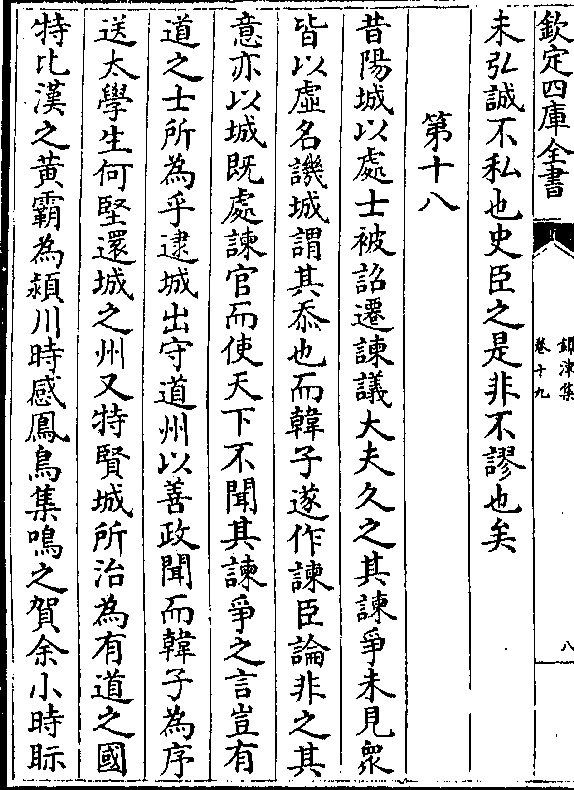 欽定四庫全書
鐔津集
卷十九
八
未弘誠不私也史臣之是非不謬也矣
第十八
昔陽城以處士被詔遷諫議大夫久之其諫爭未見衆
皆以虛名譏城謂其忝也而韓子遂作諫臣論非之其
意亦以城既處諫官而使天下不聞其諫爭之言豈有
道之士所為乎逮城出守道州以善政聞而韓子為序
送太學生何堅還城之州又特賢城所治為有道之國
特比漢之黃霸為潁川時感鳳鳥集鳴之賀余小時眎